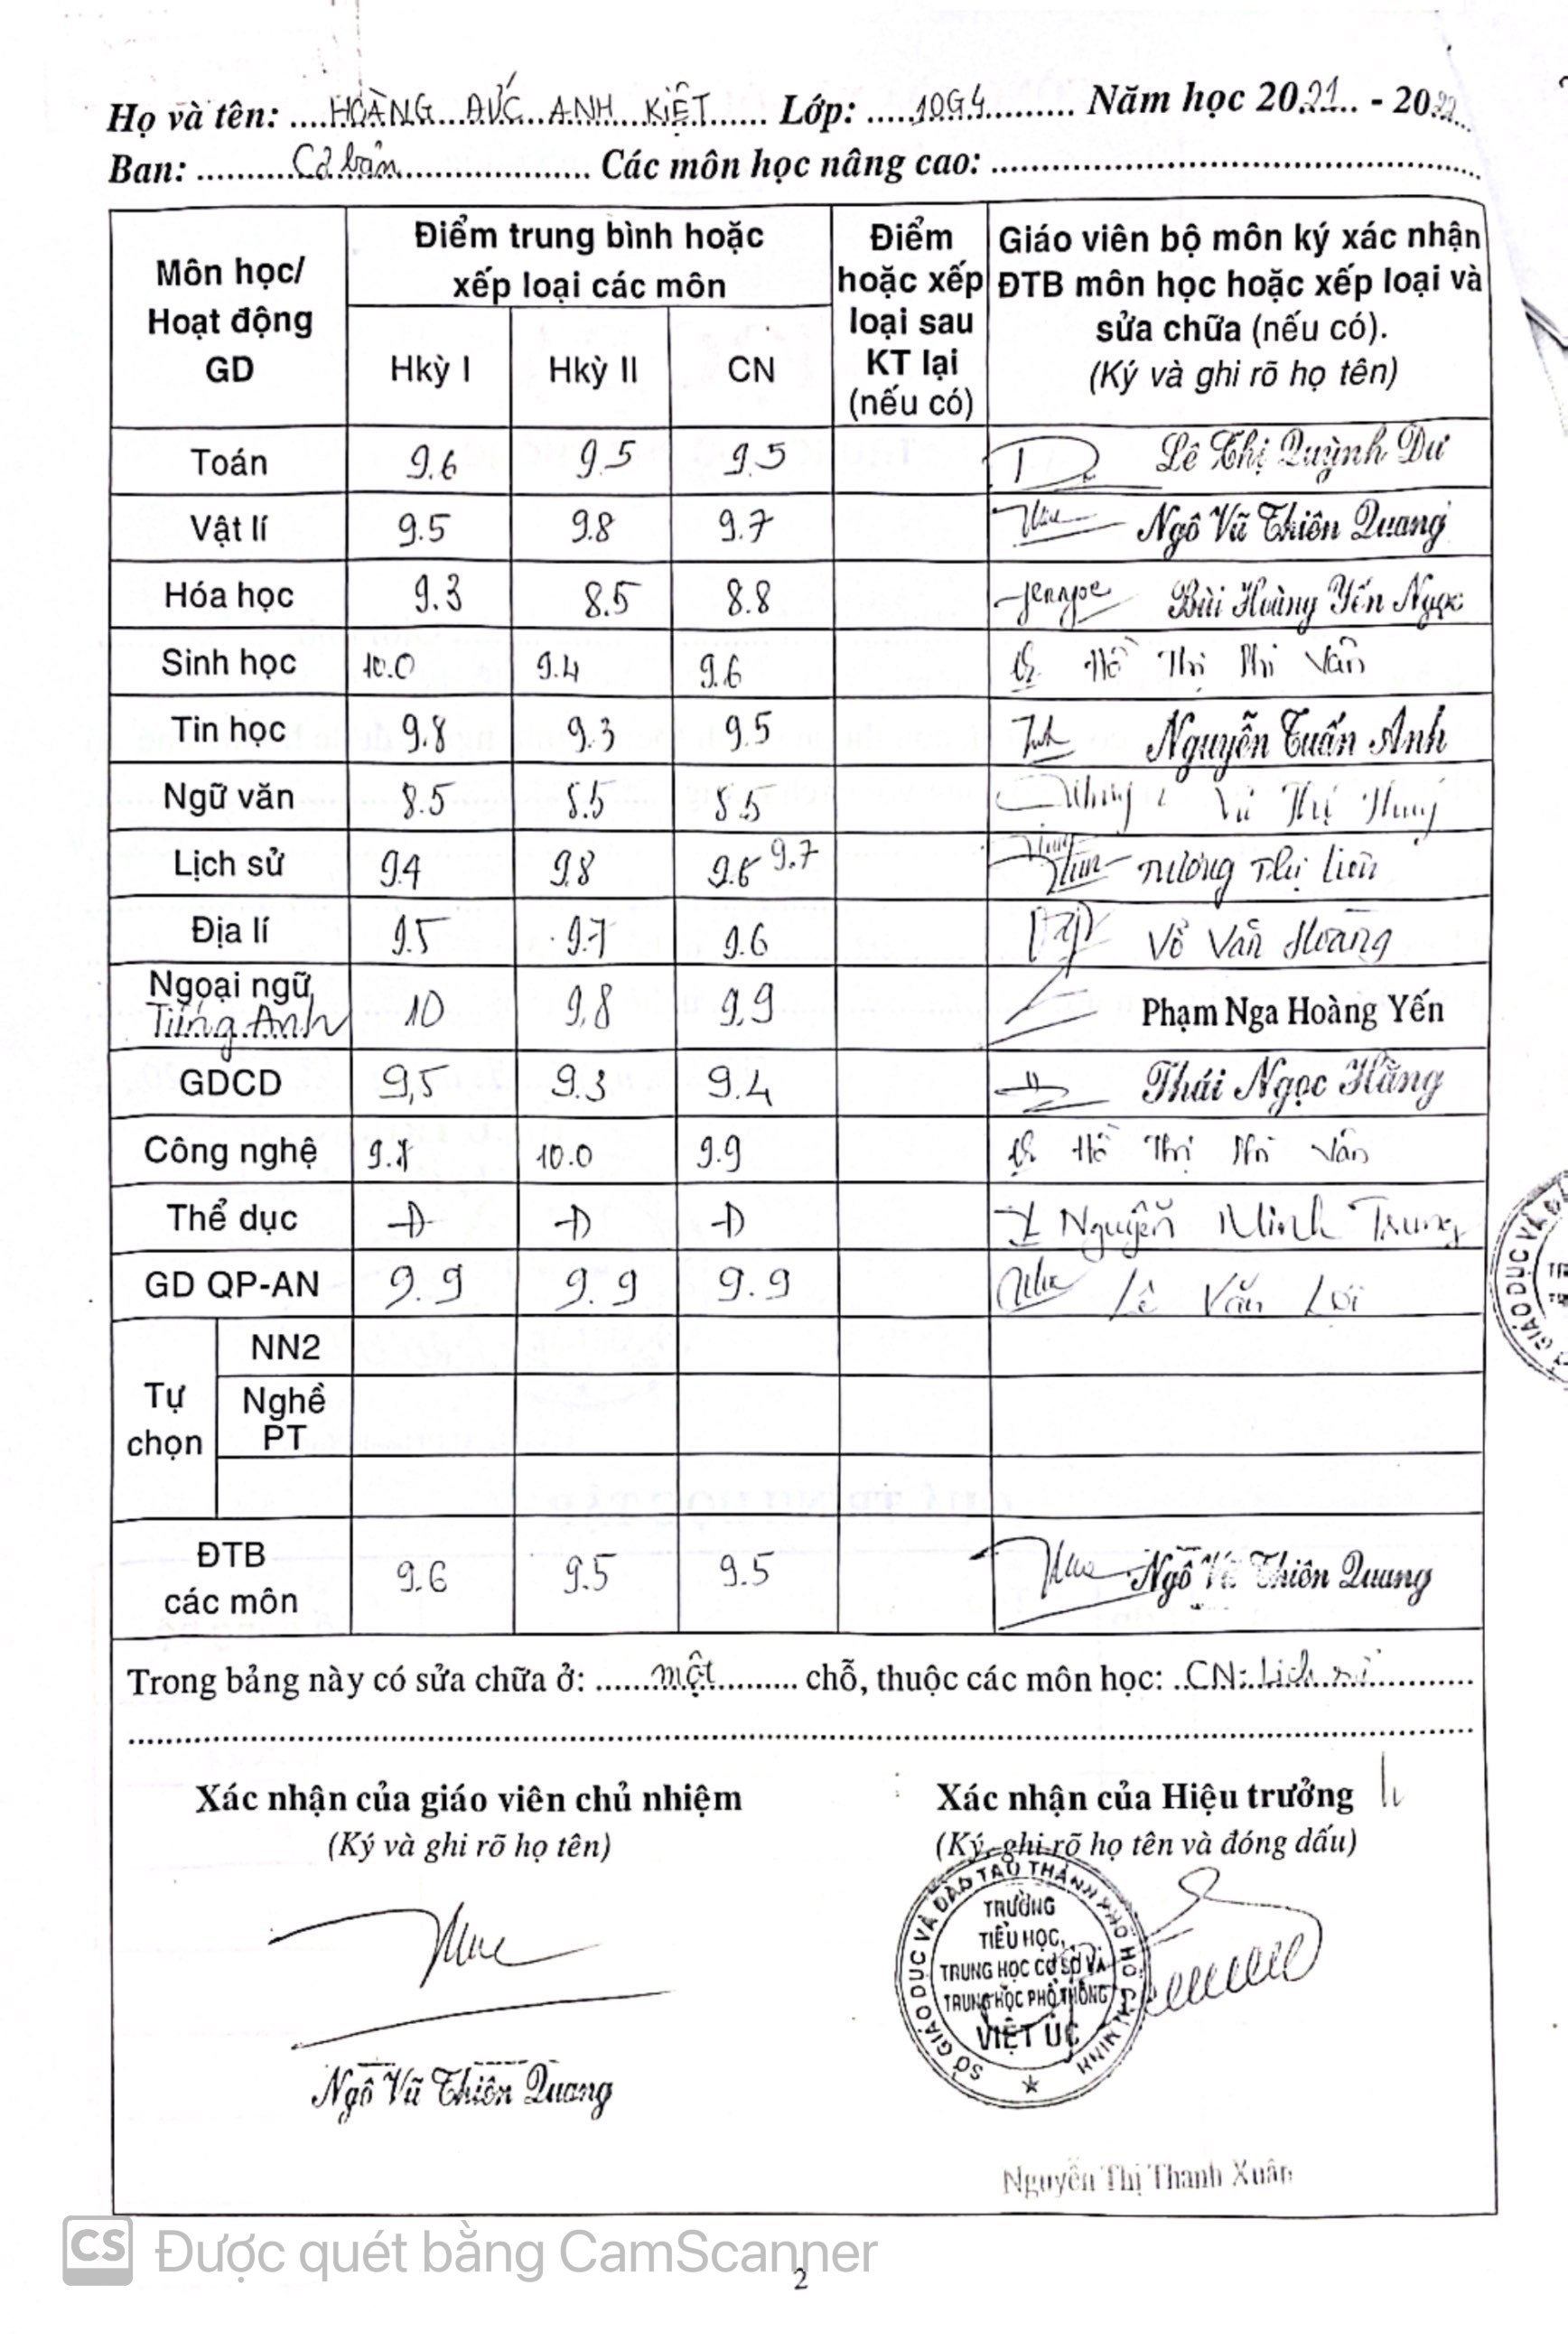 Họ và tên: ....HOÀNG ĐỨC ANH KIỆT...... Lớp: .....10G4......... Năm học 2021.. - 2022...
Ban: .........Cơ bản.................. Các môn học nâng cao: ..............................................
Môn học/ Hoạt động GD | Điểm trung bình hoặc xếp loại các môn | Điểm hoặc xếp loại sau KT lại (nếu có) | Giáo viên bộ môn ký xác nhận ĐTB môn học hoặc xếp loại và sửa chữa (nếu có). (Ký và ghi rõ họ tên)
Hkỳ I | Hkỳ II | CN
Toán 9.6 9.5 9.5 Lê Thị Quỳnh Dư
Vật lí 9.5 9.8 9.7 Ngô Vũ Thiên Quang
Hóa học 9.3 8.5 8.8 Bùi Hoàng Yến Ngọc
Sinh học 10.0 9.4 9.6 Hồ Thị Phi Vân
Tin học 9.8 9.3 9.5 Nguyễn Tuấn Anh
Ngữ văn 8.5 8.5 8.5 Vũ Thị
Lịch sử 9.4 9.8 9.7 Trương Thị Liên
Địa lí 9.5 9.7 9.6 Võ Văn Hoàng
Ngoại ngữ Tiếng Anh 10 9,8 9,9 Phạm Nga Hoàng Yến
GDCD 9,5 9.3 9.4 Thái Ngọc Hằng
Công nghệ 10.0 9.9 Hồ Thị Phi Vân
Thể dục Đ Đ Đ Nguyễn Minh Trung
GD QP-AN 9.9 9.9 9.9 Lê Văn Lợi
Tự chọn
NN2
Nghề PT
ĐTB các môn 9.6 9.5 9.5 Ngô Vũ Thiên Quang
Trong bảng này có sửa chữa ở: .......một......... chỗ, thuộc các môn học: ..CN: Lịch sử............
Xác nhận của giáo viên chủ nhiệm
(Ký và ghi rõ họ tên)
Ngô Vũ Thiên Quang
Xác nhận của Hiệu trưởng
(Ký, ghi rõ họ tên và đóng dấu)
SỞ GIÁO DỤC VÀ ĐÀO TẠO THÀNH PHỐ HỒ CHÍ MINH
TRƯỜNG
TIỂU HỌC,
TRUNG HỌC CƠ SỞ VÀ
TRUNG HỌC PHỔ THÔNG
VIỆT ÚC
Nguyễn Thị Thanh Xuân
CS Được quét bằng CamScanner
2